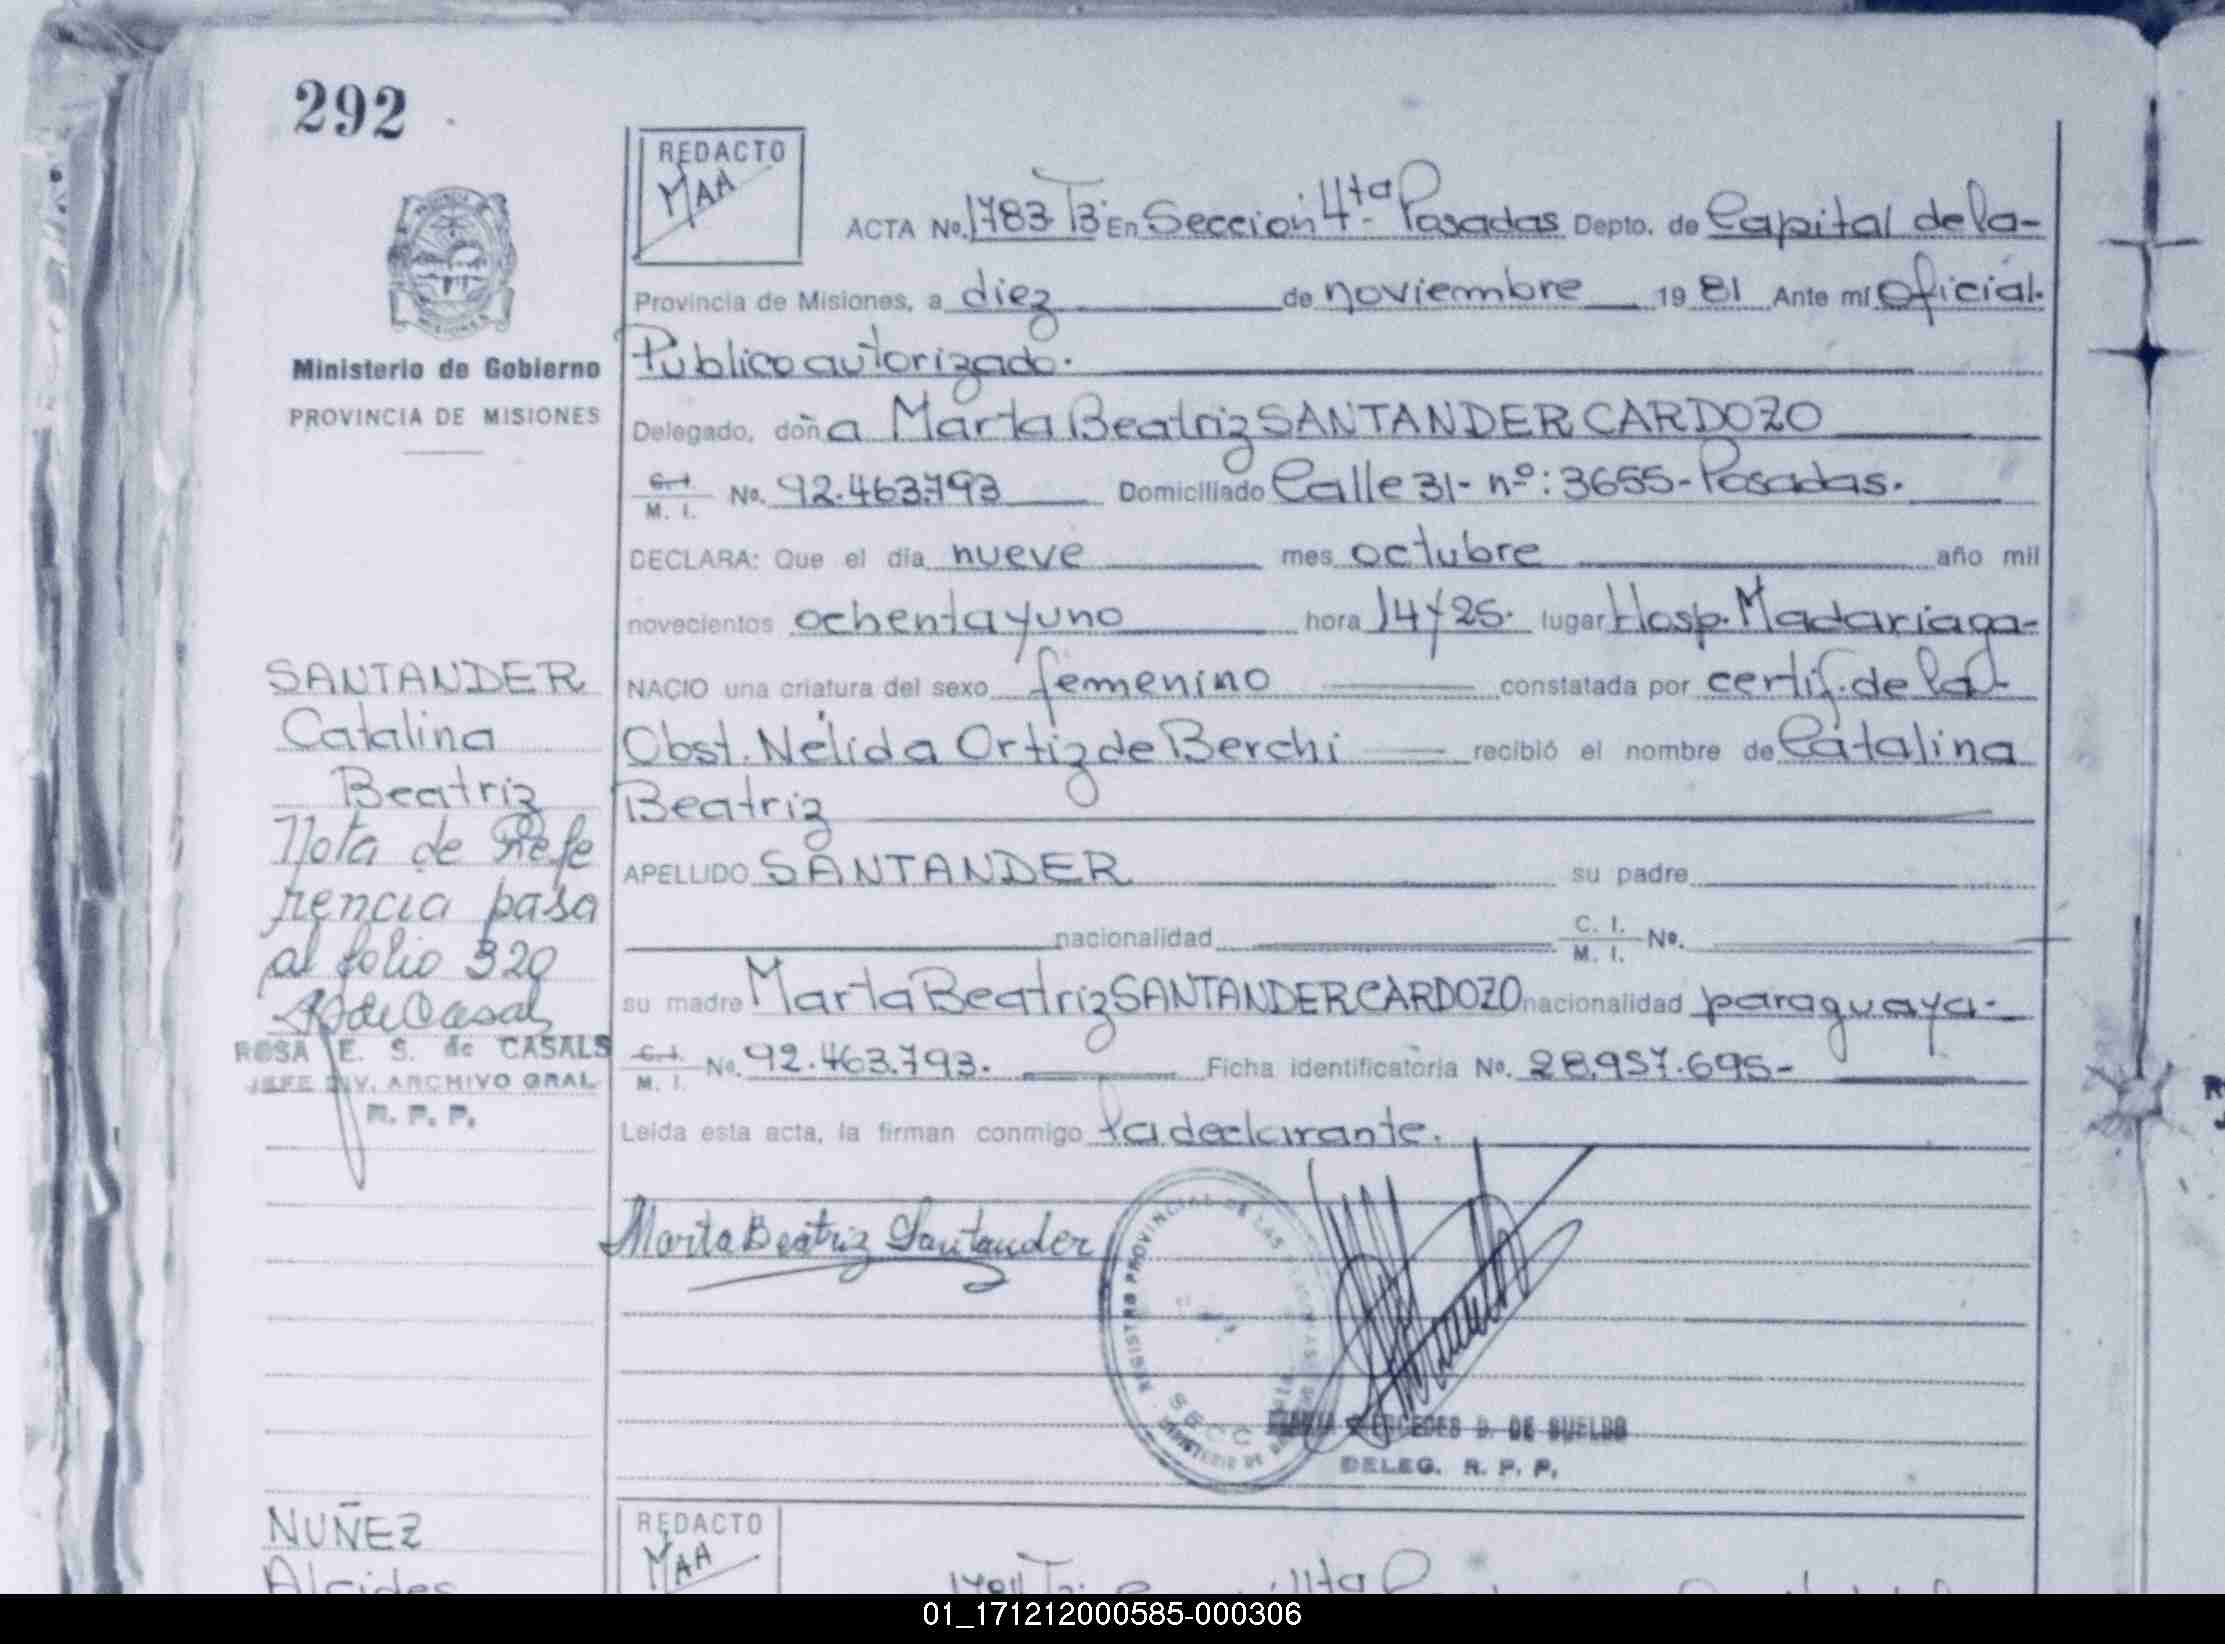 292
REDACTO
MAA
ACTA No. 1783 T3 En Sección 4ta Posadas Depto. de Capital de la-
Provincia de Misiones, a diez de noviembre 1981 Ante mí Oficial
Publico autorizado.
Ministerio de Gobierno
PROVINCIA DE MISIONES
Delegado, doña Marta Beatriz SANTANDER CARDOZO
C.I. M. I. No. 92.463.793 Domiciliado Calle 31- nº: 3655- Posadas.
DECLARA: Que el día nueve mes octubre año mil
novecientos ochenta y uno hora 14 y 25. lugar Hosp. Madariaga-
NACIO una criatura del sexo femenino constatada por certif. de la
Obst. Nélida Ortiz de Berchi recibió el nombre de Catalina
Beatriz
APELLIDO SANTANDER su padre
nacionalidad C. I. M. I. No.
su madre Marta Beatriz SANTANDER CARDOZO nacionalidad paraguaya-
C.I. M. I. No. 92.463.793. Ficha identificatoria No. 28.957.695-
Leída esta acta, la firman conmigo la declarante.
SANTANDER
Catalina
Beatriz
Nota de Refe
rencia pasa
al folio 320
R de Casals
ROSA E. S. de CASALS
JEFE DIV. ARCHIVO GRAL
R. P. P.
Marta Beatriz Santander
REGISTRO PROVINCIAL DE LAS
SECC
MERCEDES D. DE SUELDO
DELEG. R. P. P.
NUÑEZ
Alcides
REDACTO
MAA
01_171212000585-000306